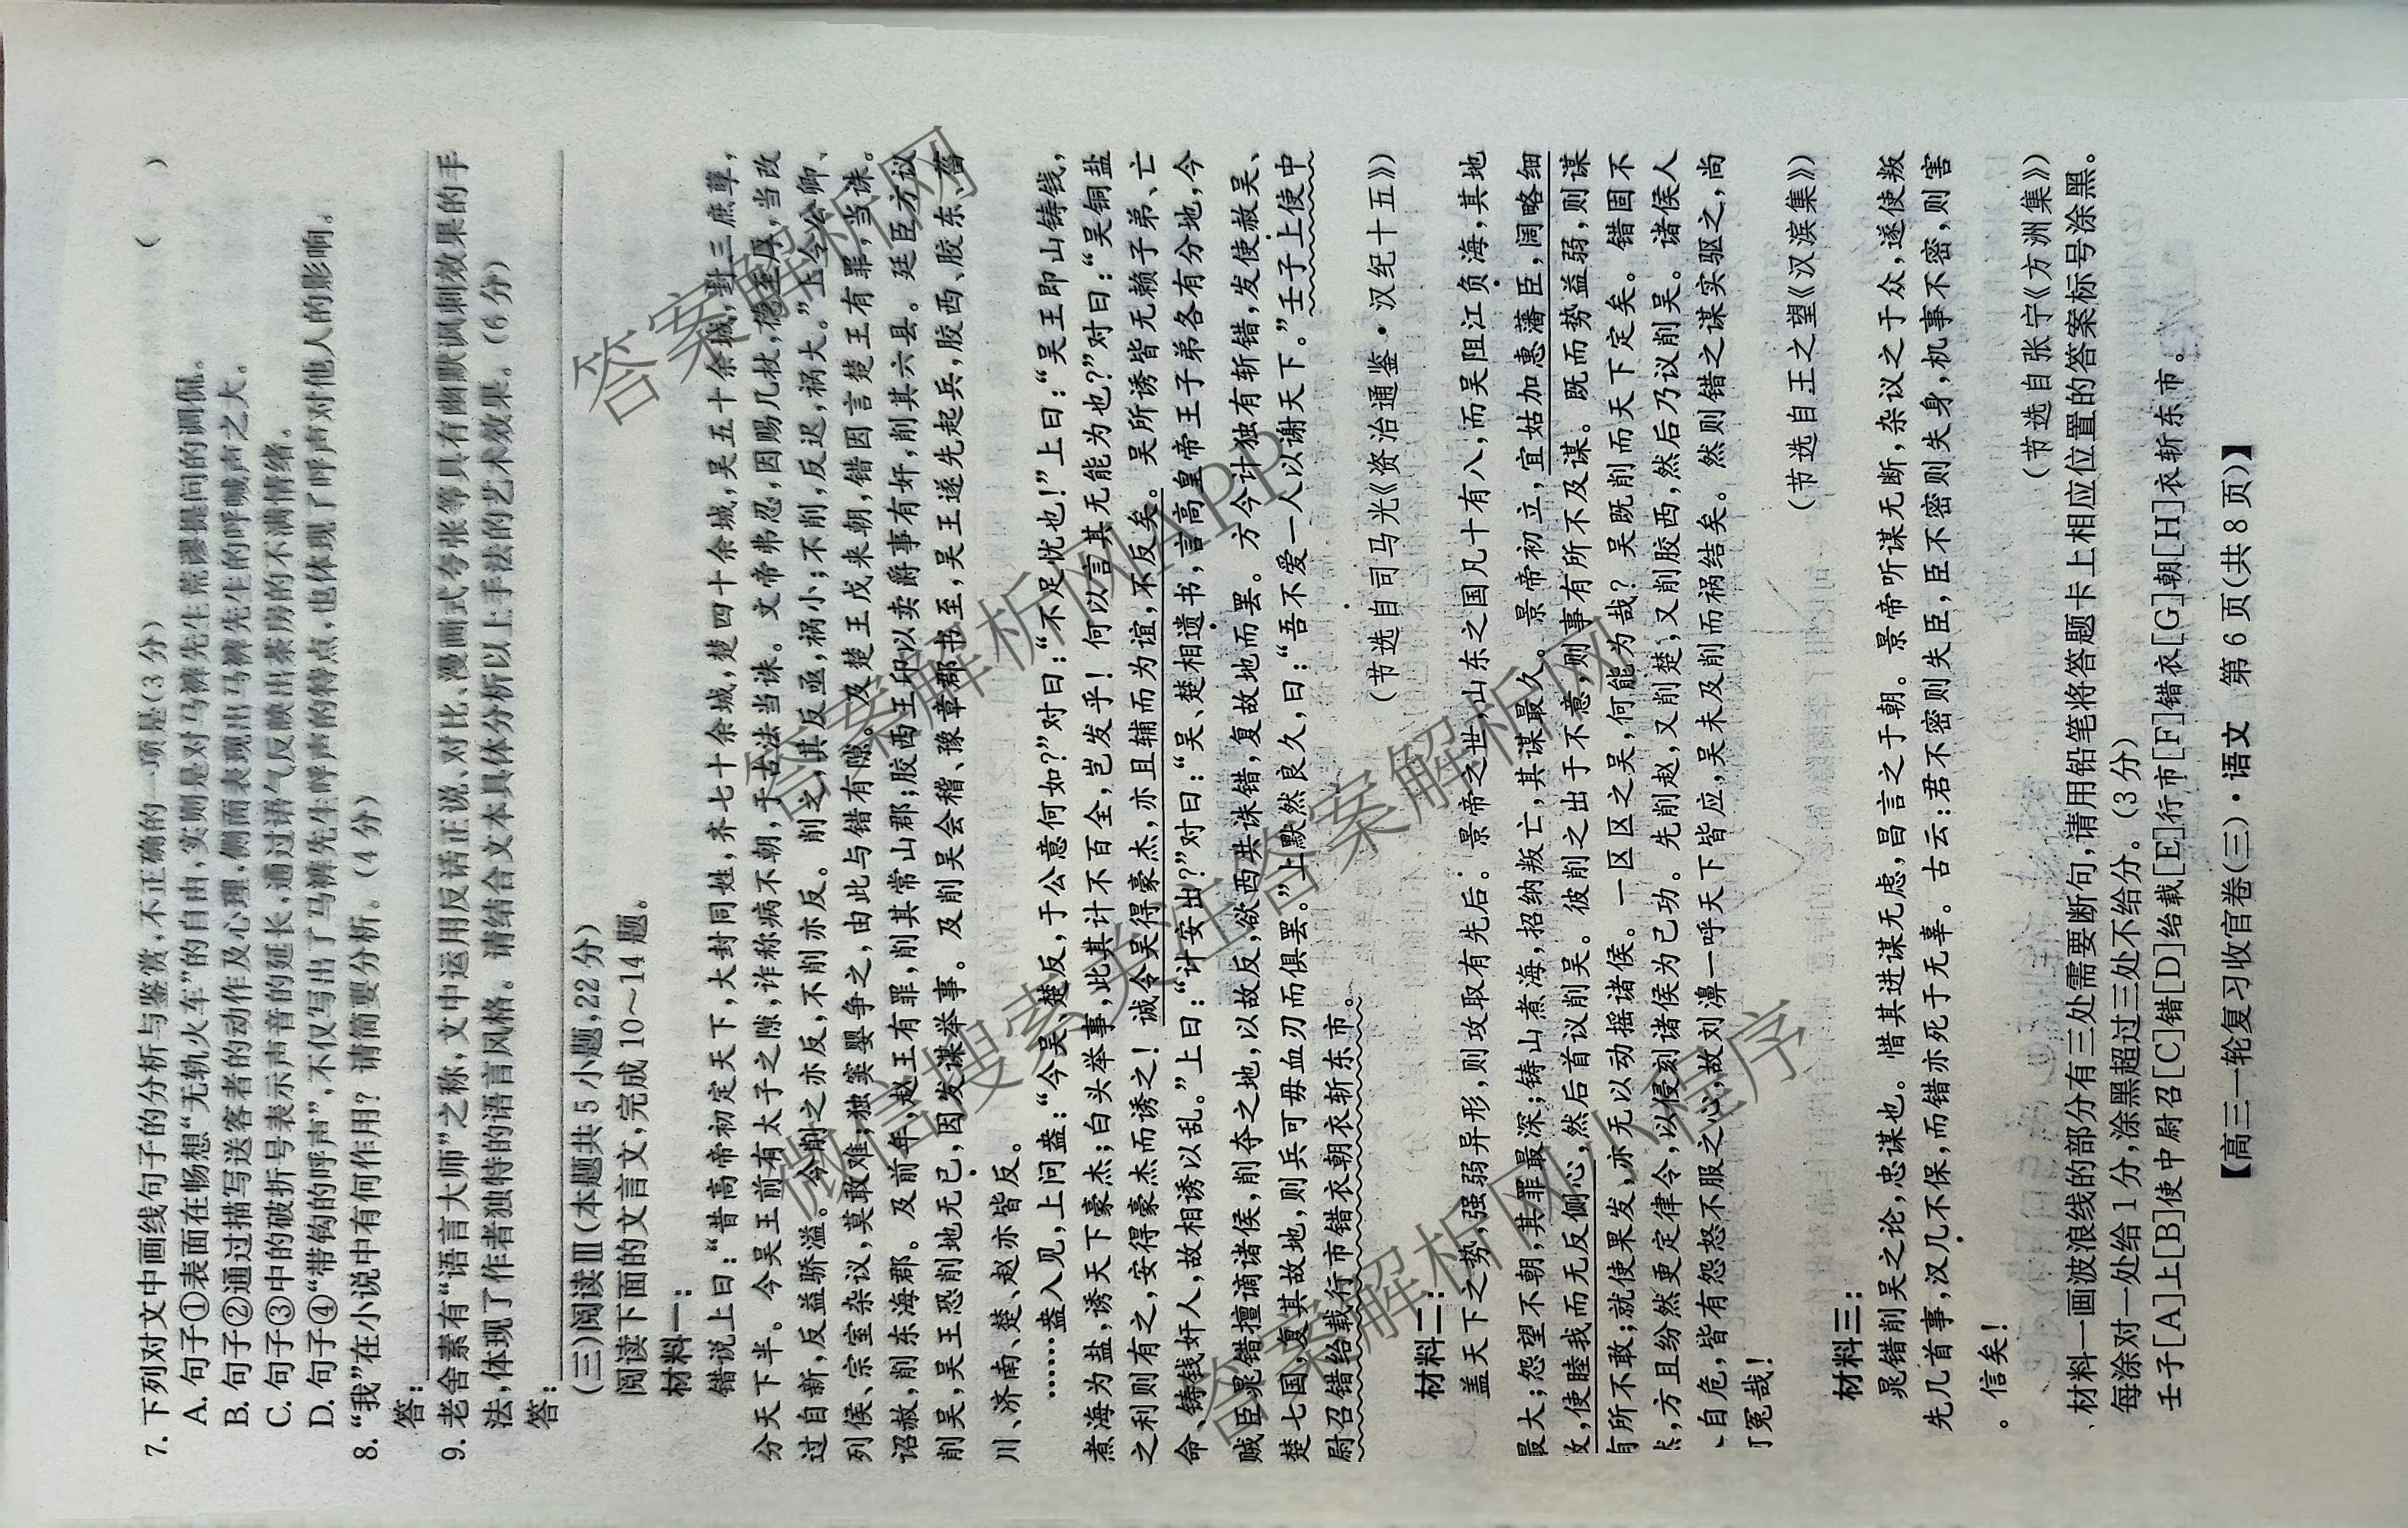 7. 下列对文中画线句子的分析与鉴赏,不正确的一项是(3分) ( )
A. 句子①表面在畅想“无轨火车”的自由,实则是对马裤先生荒谬提问的调侃。
B. 句子②通过描写送客者的动作及心理,侧面表现出马裤先生的呼喊声之大。
C. 句子③中的破折号表示声音的延长,通过语气反映出茶房的不满情绪。
D. 句子④“带钩的呼声”,不仅写出了马裤先生呼声的特点,也体现了呼声对他人的影响。
8. “我”在小说中有何作用？请简要分析。(4分)
答:
9. 老舍素有“语言大师”之称,文中运用反话正说、对比、漫画式夸张等具有幽默讽刺效果的手
法,体现了作者独特的语言风格。请结合文本具体分析以上手法的艺术效果。(6分)
答:
(三)阅读Ⅲ(本题共5小题,22分)
阅读下面的文言文,完成10～14题。
材料一:
错说上曰:“昔高帝初定天下,大封同姓,齐七十余城,楚四十余城,吴五十余城,封三庶孽,
分天下半。今吴王前有太子之隙,诈称病不朝,于古法当诛。文帝弗忍,因赐几杖,德至厚,当改
过自新,反益骄溢。今削之亦反,不削亦反。削之,其反亟,祸小;不削,反迟,祸大。”上令公卿、
列侯、宗室杂议,莫敢难;独窦婴争之,由此与错有隙。及楚王戊来朝,错因言楚王有罪,当诛。
诏赦,削东海郡。及前年,赵王有罪,削其常山郡;胶西王卬以卖爵事有奸,削其六县。廷臣方议
削吴,吴王恐削地无已,因发谋举事。及削吴会稽、豫章郡书至,吴王遂先起兵,胶西、胶东、菑
川、济南、楚、赵亦皆反。
……盎入见,上问盎:“今吴、楚反,于公意何如?”对曰:“不足忧也!”上曰:“吴王即山铸钱,
煮海为盐,诱天下豪杰;白头举事,此其计不百全,岂发乎！何以言其无能为也?”对曰:“吴铜盐
之利则有之,安得豪杰而诱之！诚令吴得豪杰,亦且辅而为谊,不反矣。吴所诱皆无赖子弟、亡
命、铸钱奸人,故相诱以乱。”上曰:“计安出?”对曰:“吴、楚相遗书,言高皇帝王子弟各有分地,今
贼臣晁错擅谪诸侯,削夺之地,以故反,欲西共诛错,复故地而罢。方今计独有斩错,发使赦吴、
楚七国,复其故地,则兵可毋血刃而俱罢。”上默然良久,曰:“吾不爱一人以谢天下。”壬子上使中
尉召错绐载行市错衣朝衣斩东市。
(节选自司马光《资治通鉴·汉纪十五》)
材料二:
盖天下之势,强弱异形,则攻取有先后。景帝之世,山东之国凡十有八,而吴阻江负海,其地
最大;怨望不朝,其罪最深;铸山煮海,招纳叛亡,其谋最久。景帝初立,宜姑加惠藩臣,阔略细
故,使睦我而无反侧心,然后首议削吴。彼削之出于不意,则事有所不及谋。既而势益弱,则谋
有所不敢;就使果发,亦无以动摇诸侯。一区区之吴,何能为哉？吴既削而天下定矣。错固不
,方且纷然更定律令,以侵刻诸侯为己功。先削赵,又削楚,又削胶西,然后乃议削吴。诸侯人
人自危,皆有怨怒不服之心,故刘濞一呼天下皆应,吴未及削而祸结矣。然则错之谋实驱之,尚
可冤哉！
(节选自王之望《汉滨集》)
材料三:
晁错削吴之论,忠谋也。惜其进谋无虑,昌言之于朝。景帝听谋无断,杂议之于众,遂使叛
先几首事,汉几不保,而错亦死于无辜。古云:君不密则失臣,臣不密则失身,机事不密,则害
。信矣！
(节选自张宁《方洲集》)
、材料一画波浪线的部分有三处需要断句,请用铅笔将答题卡上相应位置的答案标号涂黑。
每涂对一处给1分,涂黑超过三处不给分。(3分)
壬子[A]上[B]使中尉召[C]错[D]绐载[E]行市[F]错衣[G]朝[H]衣斩东市。
【高三一轮复习收官卷(三)·语文 第6页(共8页)】
答案解析网
答案解析网APP
微信搜索关注答案解析网
答案解析网小程序